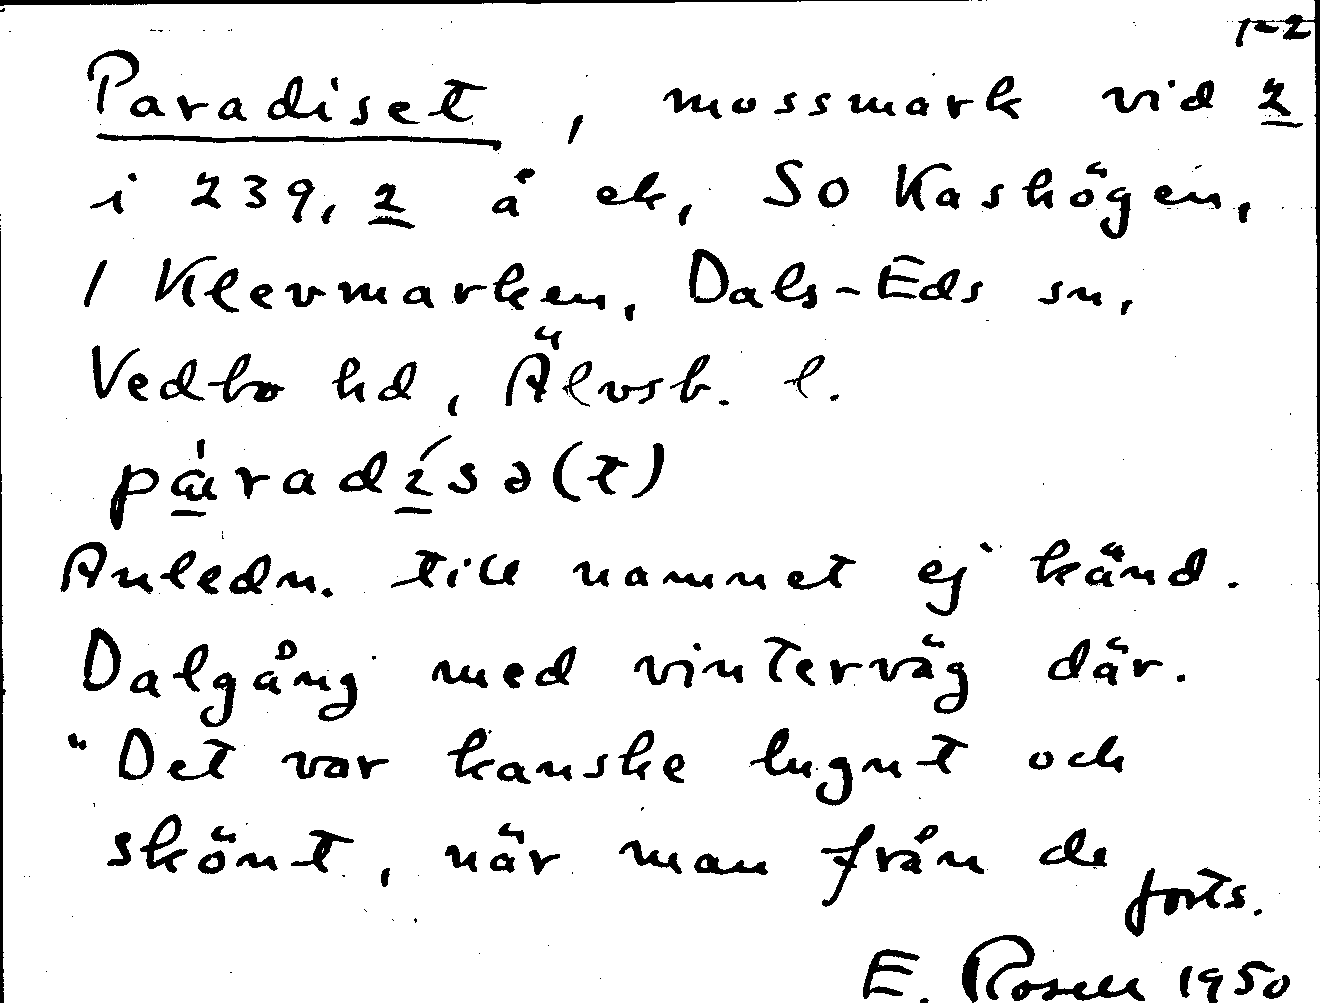 1-2
Paradiset, mossmark vid 2
i 239,2 å ek, SO Kashögen,
1 Klevmarken, Dals-Eds sn,
Vedbo hd, Älvsb. l.
pàradísə(t)
Anledn. till namnet ej känd.
Dalgång med vinterväg där.
"Det var kanske lugnt och
skönt, när man från de
forts.
E. Rosell 1950